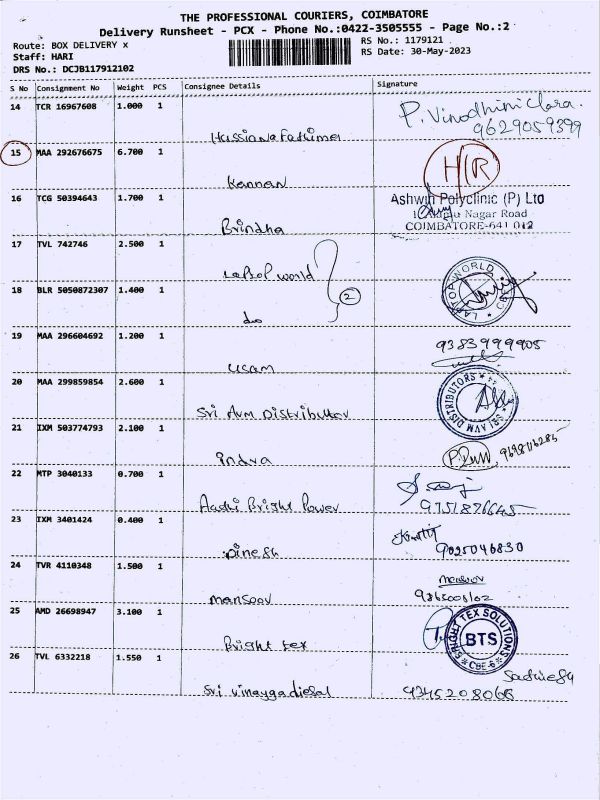 THE PROFESSIONAL COURIERS, COIMBATORE
Delivery Runsheet - PCX - Phone No.:0422-3505555 - Page No.:2
Route: BOX DELIVERY x
RS No.: 1179121
Staff: HARI
RS Date: 30-May-2023
DRS No.: DCJB117912102
S No Consignment No Weight PCS Consignee Details Signature
14 TCR 16967608 1.000 1
P. Vinodhini Clara.
9629059399
Hassiana Fathima
15 MAA 292676675 6.700 1
H/R
Kannan
16 TCG 50394643 1.700 1
Ashwin Polyclinic (P) Ltd
Nagar Road
COIMBATORE-641 012
Brindha
17 TVL 742746 2.500 1
Laptop world
2
18 BLR 5050872307 1.400 1
LAPTOP WORLD
CBE
do
19 MAA 296604692 1.200 1
9383999905
usam
20 MAA 299859854 2.600 1
SRI AVM DISTRIBUTORS
Sri Avm Distributor
21 IXM 503774793 2.100 1
Indra
22 MTP 3040133 0.700 1
9751876645
Aadhi Bright Power
23 IXM 3401424 0.400 1
9025046830
Dinesh
24 TVR 4110348 1.500 1
mansoor
mansoor
25 AMD 26698947 3.100 1
BRIGHT TEX SOLUTIONS
BTS
CBE-6
Bright tex
26 TVL 6332218 1.550 1
9345208066
Sri vinayga diesal